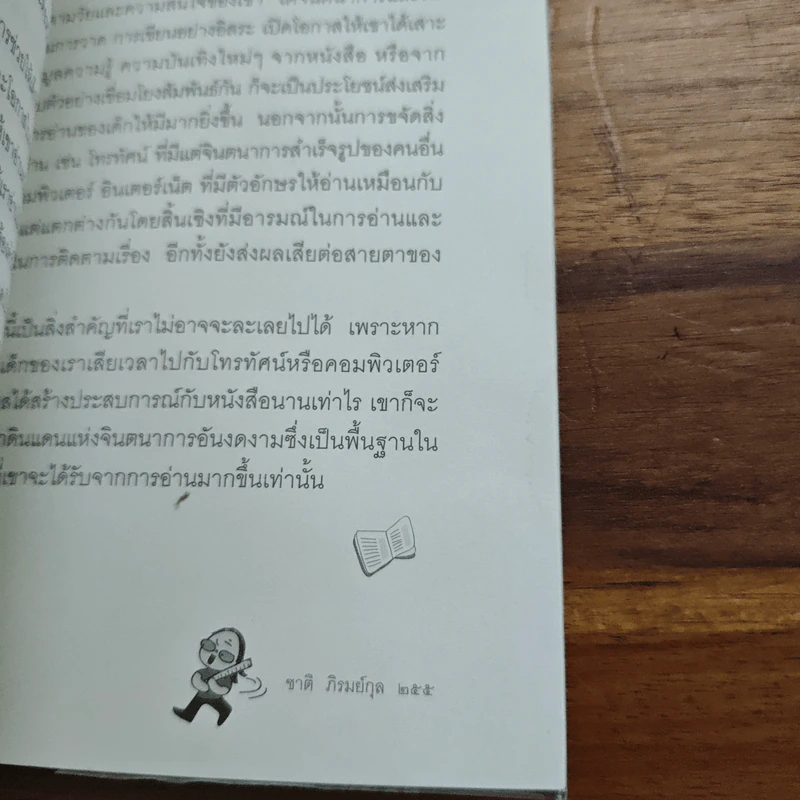 ามวัยและความสนใจของเขา
นการวาด การเขียนอย่างอิสระ เปิดโอกาสให้เขาได้เสาะ
มูลความรู้ ความบันเทิงใหม่ๆ จากหนังสือ หรือจาก
บตัวอย่างเชื่อมโยงสัมพันธ์กัน ก็จะเป็นประโยชน์ส่งเสริม
ารอ่านของเด็กให้มีมากยิ่งขึ้น นอกจากนั้นการขจัดสิ่ง
่าน เช่น โทรทัศน์ ที่มีแต่จินตนาการสำเร็จรูปของคนอื่น
มพิวเตอร์ อินเตอร์เน็ต ที่มีตัวอักษรให้อ่านเหมือนกับ
แต่แตกต่างกันโดยสิ้นเชิงที่มีอารมณ์ในการอ่านและ
ในการติดตามเรื่อง อีกทั้งยังส่งผลเสียต่อสายตาของ
นี้เป็นสิ่งสำคัญที่เราไม่อาจจะละเลยไปได้ เพราะหาก
เด็กของเราเสียเวลาไปกับโทรทัศน์หรือคอมพิวเตอร์
สได้สร้างประสบการณ์กับหนังสือนานเท่าไร เขาก็จะ
าดินแดนแห่งจินตนาการอันงดงามซึ่งเป็นพื้นฐานใน
ที่เขาจะได้รับจากการอ่านมากขึ้นเท่านั้น
ชาติ ภิรมย์กุล ๒๕๕